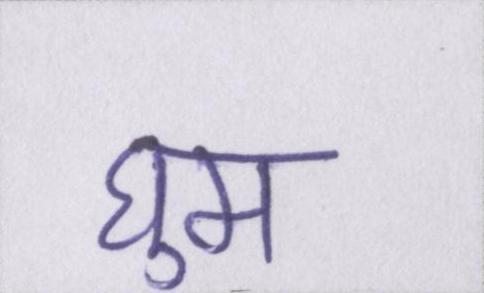 घुम